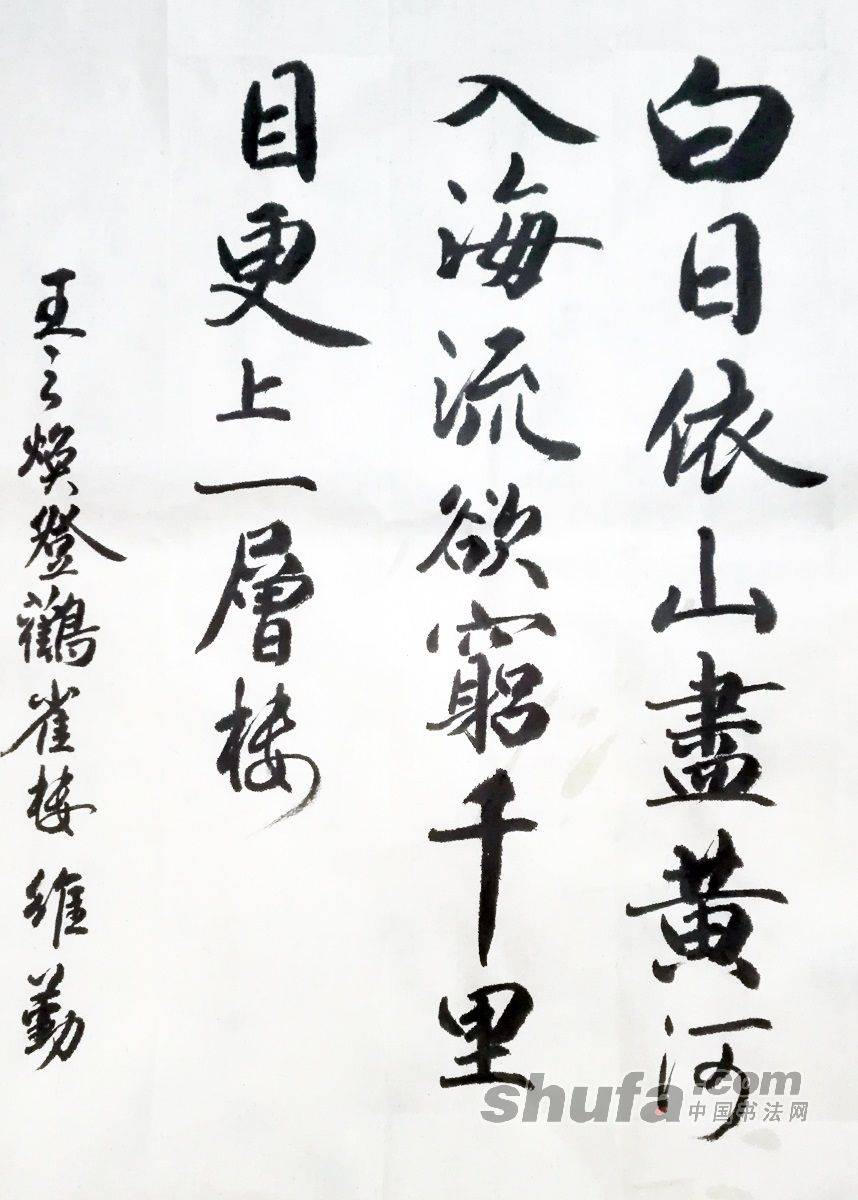 白日依山盡黄河
入海流欲窮千里
目更上一層楼
王之焕登鸛雀楼 維勤
shufa.com
中国书法网